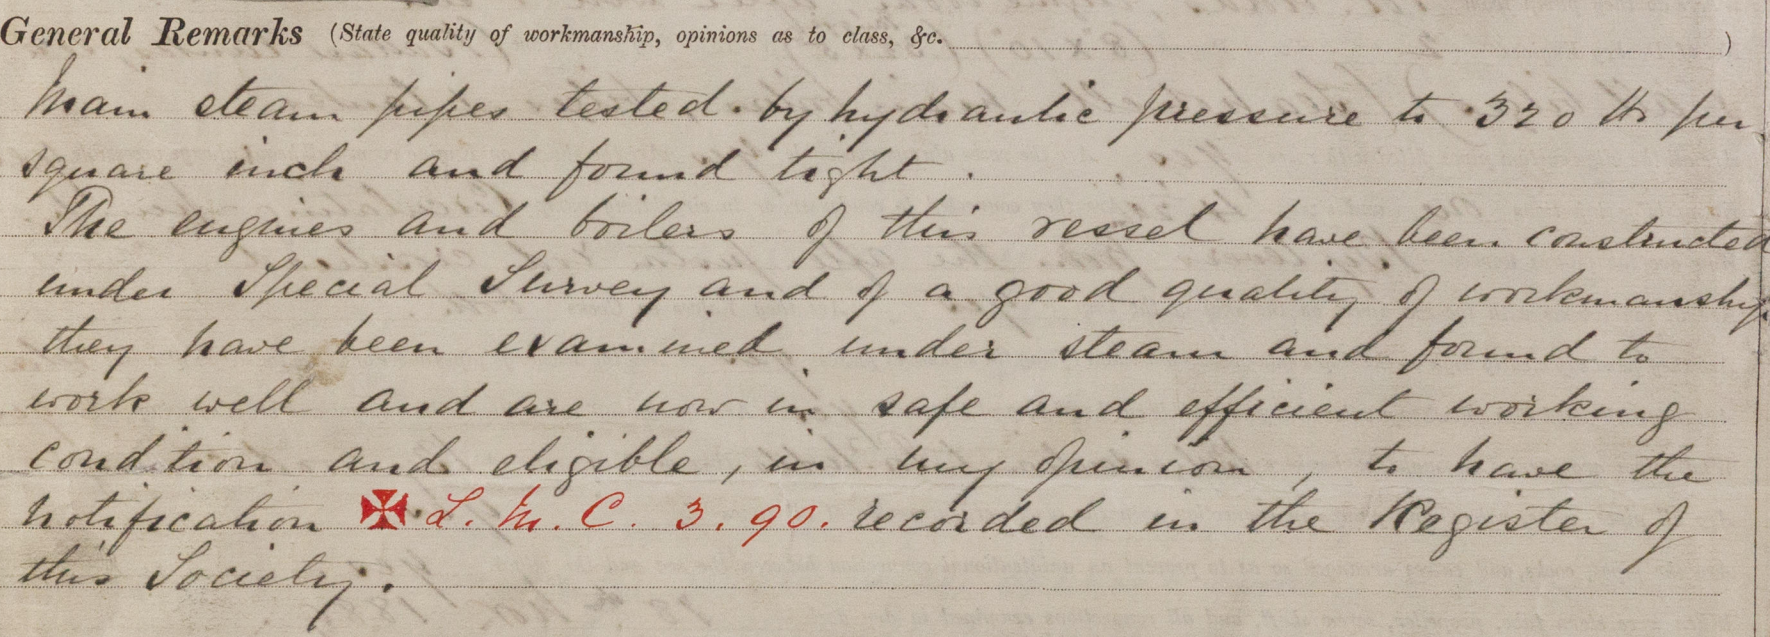 General Remarks (State quality of workmanship, opinions as to class, &c. )
Main steam pipes tested by hydraulic pressure to 320 lbs per
square inch and found tight.
The engines and boilers of this vessel have been constructed
under Special Survey and of a good quality of workmanship
they have been examined under steam and found to
work well and are now in safe and efficient working
condition and eligible, in my opinion, to have the
notification ✠ L. M. C. 3. 90. recorded in the Register of
this Society.